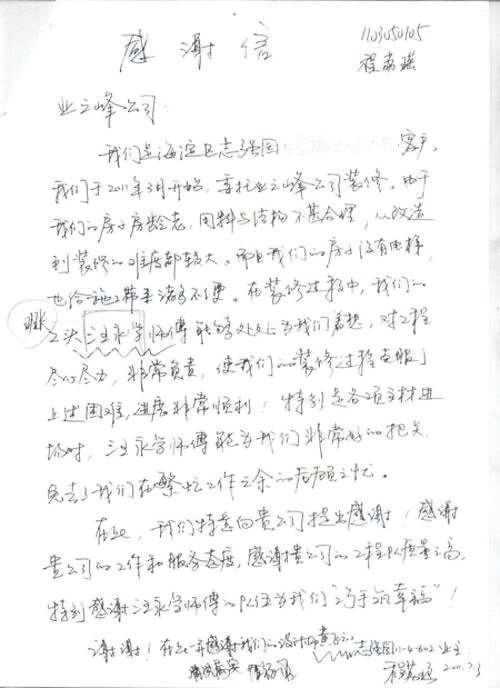 感谢信
1103050105
业之峰公司：
我们是海淀区志强园 客户，
我们于2011年3月开始，委托业之峰公司装修。由于
我们的房子房龄老，用料与结构不甚合理，从改造
到装修的难度都较大。而且我们的房子没有电梯，
也给施工带来诸多不便。在装修过程中，我们的
工头汪永学师傅能够处处为我们着想，对工程
尽心尽力，非常负责，使我们的装修过程克服了
上述困难，进展非常顺利！特别是各项主材进
场时，汪永学师傅能为我们非常好的把关，
免去了我们在繁忙工作之余的后顾之忧。
在此，我们特意向贵公司提出感谢！感谢
贵公司的工作和服务态度，感谢贵公司的工程队质量之高，
特别感谢汪永学师傅的队伍为我们“巧手筑幸福”！
谢谢！在此一并感谢我们的设计师黄
志强园11-4-602业主：
2011.7.3